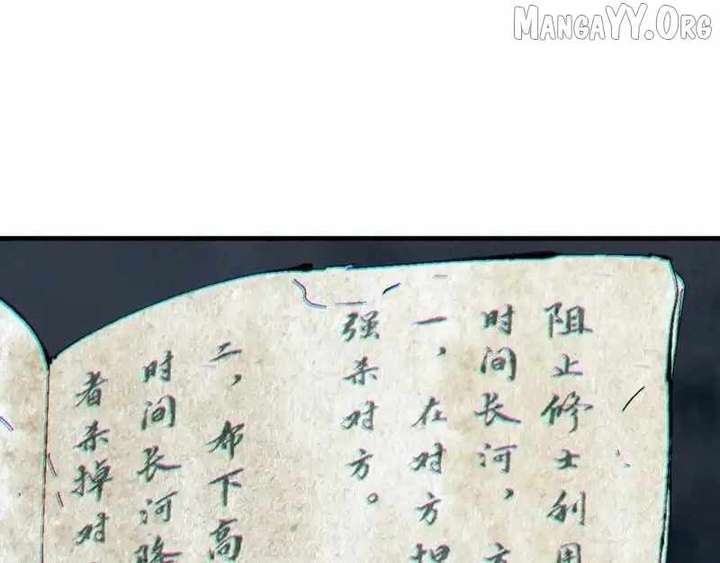 MangaYY.Org
阻止修士利用
时间长河，方
一，在对方
强杀对方。
二，布下高
时间长河降
者杀掉对